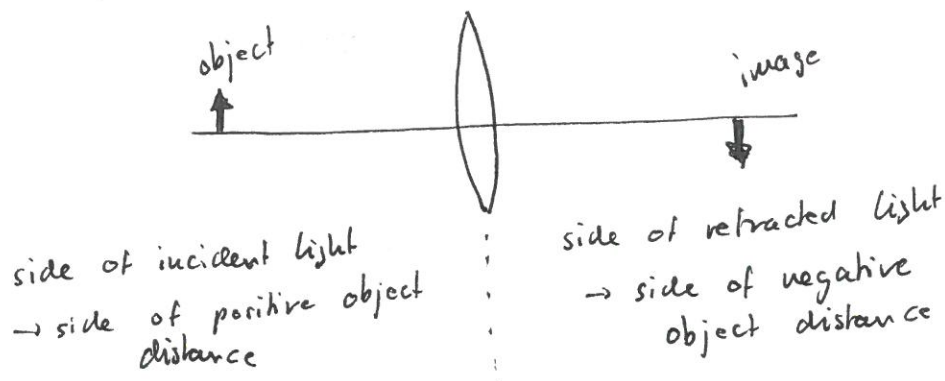 object
image
side of incident light
→ side of positive object
distance
side of refracted light
→ side of negative
object distance